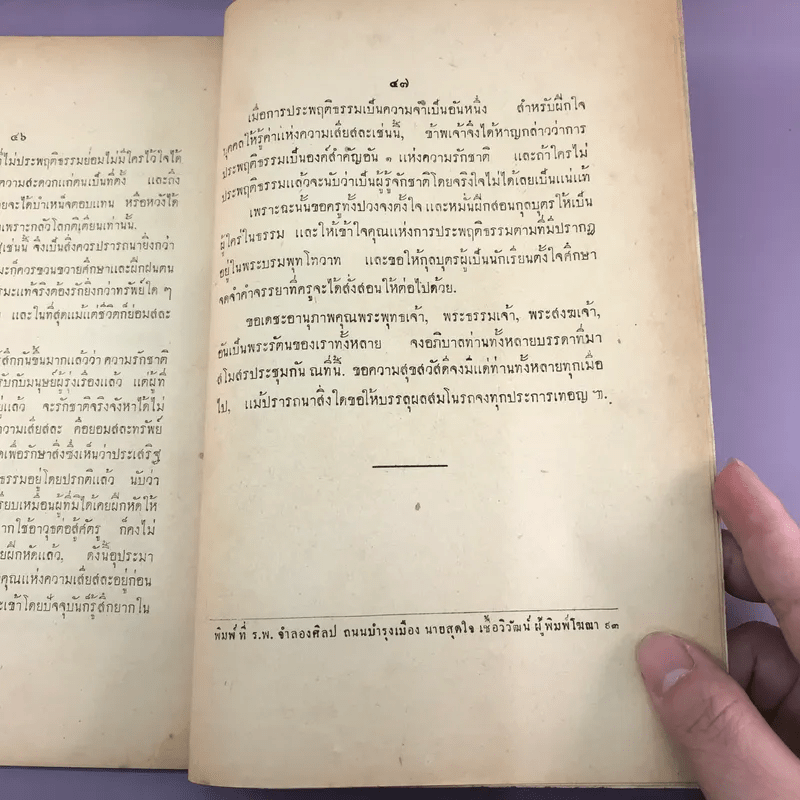 ๔๖
ที่ไม่ประพฤติธรรมย่อมไม่มีใครไว้ใจได้
ความสะดวกแก่ตนเป็นที่ตั้ง และถึง
จะได้บำเหน็จตอบแทน หรือหวังได้
เพราะกลัวโลกติเตียนเท่านั้น.
เช่นนี้ จึงเป็นสิ่งควรปรารถนายิ่งกว่า
มะก็ควรขวนขวายศึกษาและฝึกฝนตน
รมะแท้จริงต้องรักยิ่งกว่าทรัพย์ใด ๆ
และในที่สุดแม้แต่ชีวิตก็ย่อมสละ
สึกกันขึ้นมากแล้วว่า ความรักชาติ
รับกับมนุษย์ผู้รุ่งเรืองแล้ว แต่ผู้ที่
แล้ว จะรักชาติจริงจังหาได้ไม่
ความเสียสละ คือยอมสละทรัพย์
เพื่อรักษาสิ่งซึ่งเห็นว่าประเสริฐ
ธรรมอยู่โดยปรกติแล้ว นับว่า
รียบเหมือนผู้ที่มิได้เคยฝึกหัดให้
ากใช้อาวุธต่อสู้ศัตรู ก็คงไม่
ยฝึกหัดแล้ว, ดังนี้อุประมา
คุณแห่งความเสียสละอยู่ก่อน
ะเข้าโดยปัจจุบันก็รู้สึกยากใน
๔๗
เมื่อการประพฤติธรรมเป็นความจำเป็นอันหนึ่ง สำหรับฝึกใจ
บุคคลให้รู้ค่าแห่งความเสียสละเช่นนี้, ข้าพเจ้าจึงได้หาญกล่าวว่าการ
ประพฤติธรรมเป็นองค์สำคัญอัน ๑ แห่งความรักชาติ และถ้าใครไม่
ประพฤติธรรมแล้วจะนับว่าเป็นผู้รู้จักชาติโดยจริงใจไม่ได้เลยเป็นแน่แท้
เพราะฉะนั้นขอครูทั้งปวงจงตั้งใจ และหมั่นฝึกสอนกุลบุตรให้เป็น
ผู้ใคร่ในธรรม และให้เข้าใจคุณแห่งการประพฤติธรรมตามที่มีปรากฏ
อยู่ในพระบรมพุทโธวาท และขอให้กุลบุตรผู้เป็นนักเรียนตั้งใจศึกษา
จดจำคำจรรยาที่ครูจะได้สั่งสอนให้ต่อไปด้วย.
ขอเดชะอานุภาพคุณพระพุทธเจ้า, พระธรรมเจ้า, พระสงฆเจ้า,
อันเป็นพระรัตนของเราทั้งหลาย จงอภิบาลท่านทั้งหลายบรรดาที่มา
สโมสรประชุมกัน ณที่นี้. ขอความสุขสวัสดีจงมีแด่ท่านทั้งหลายทุกเมื่อ
ไป, แม้ปรารถนาสิ่งใดขอให้บรรลุผลสมโนรถจงทุกประการเทอญ ฯ.
พิมพ์ที่ ร.พ. จำลองศิลป ถนนบำรุงเมือง นายสุดใจ เชื้อวิวัฒน์ ผู้พิมพ์โฆษณา ๙๓